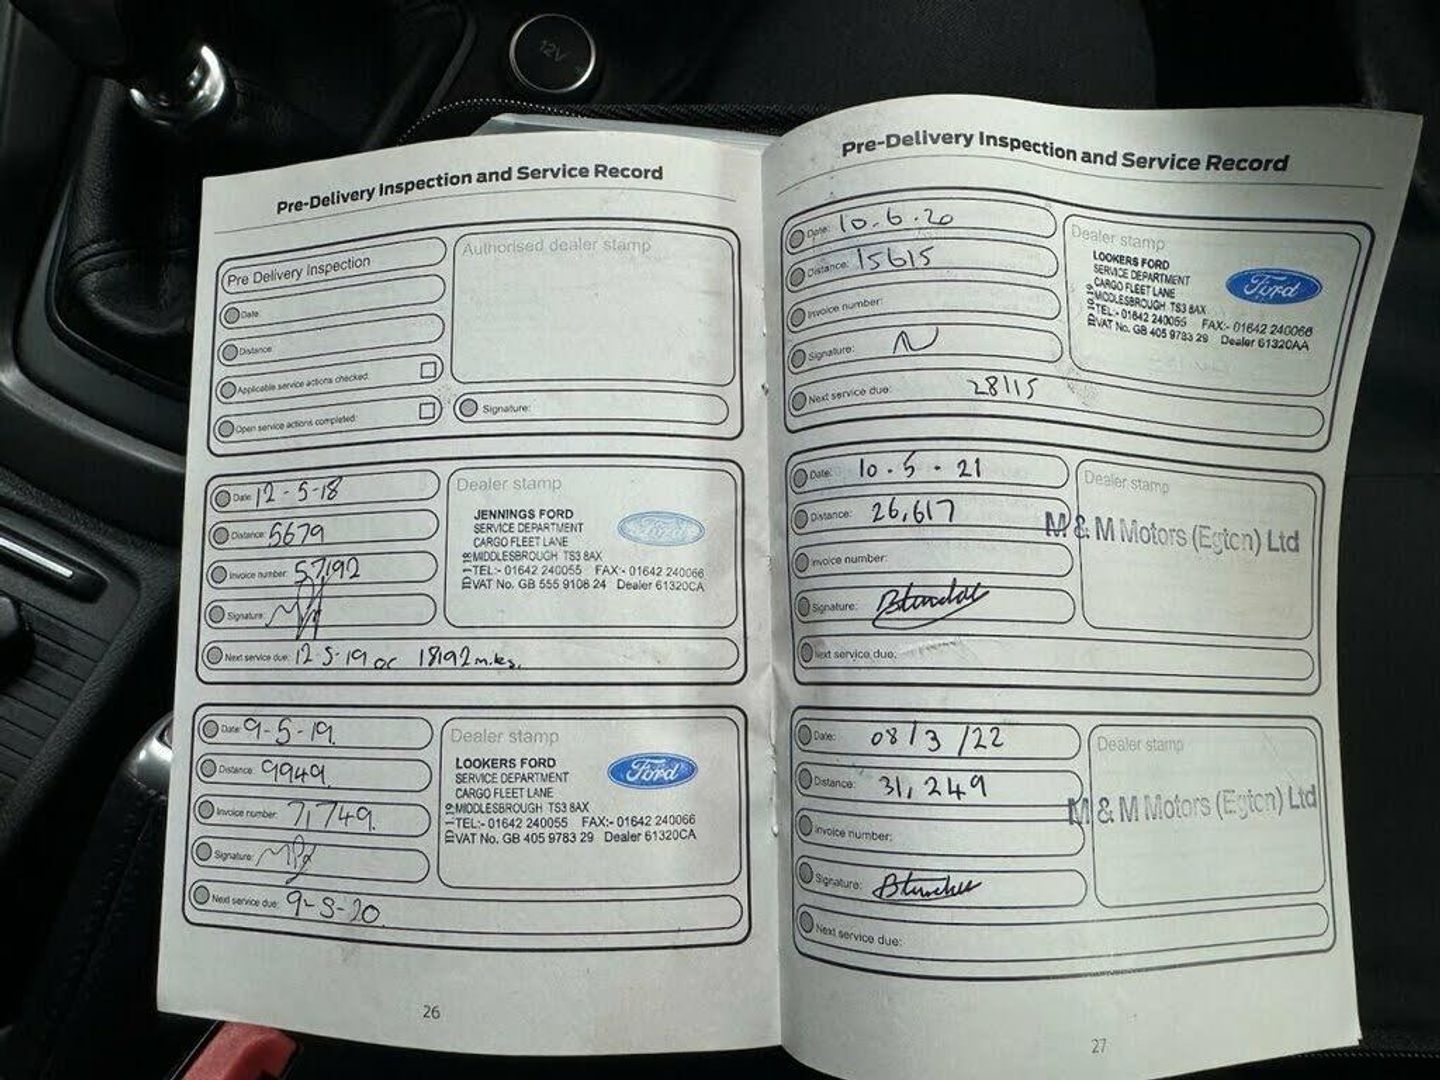 12V
Pre-Delivery Inspection and Service Record
Pre Delivery Inspection
Date:
Distance:
Applicable service actions checked:
Open service actions completed:
Authorised dealer stamp
Signature:
Date: 12-5-18
Distance: 5679
Invoice number: 57,192
Signature:
Next service due: 12-5-19 or 18192 miles.
Dealer stamp
JENNINGS FORD
SERVICE DEPARTMENT
CARGO FLEET LANE
MIDDLESBROUGH TS3 8AX
TEL:- 01642 240055 FAX:- 01642 240066
VAT No. GB 555 9108 24 Dealer 61320CA
Ford
Date: 9-5-19.
Distance: 9949.
Invoice number: 7,749.
Signature:
Next service due: 9-5-20.
Dealer stamp
LOOKERS FORD
SERVICE DEPARTMENT
CARGO FLEET LANE
MIDDLESBROUGH TS3 8AX
TEL:- 01642 240055 FAX:- 01642 240066
VAT No. GB 405 9783 29 Dealer 61320CA
Ford
26
Pre-Delivery Inspection and Service Record
Date: 10.6.20
Distance: 15615
Invoice number:
Signature:
Next service due: 28115
Dealer stamp
LOOKERS FORD
SERVICE DEPARTMENT
CARGO FLEET LANE
MIDDLESBROUGH TS3 8AX
TEL:- 01642 240055 FAX:- 01642 240066
VAT No. GB 405 9783 29 Dealer 61320AA
Ford
Date: 10.5.21
Distance: 26,617
Invoice number:
Signature:
Next service due:
Dealer stamp
M & M Motors (Egton) Ltd
Date: 08/3/22
Distance: 31,249
Invoice number:
Signature:
Next service due:
Dealer stamp
M & M Motors (Egton) Ltd
27